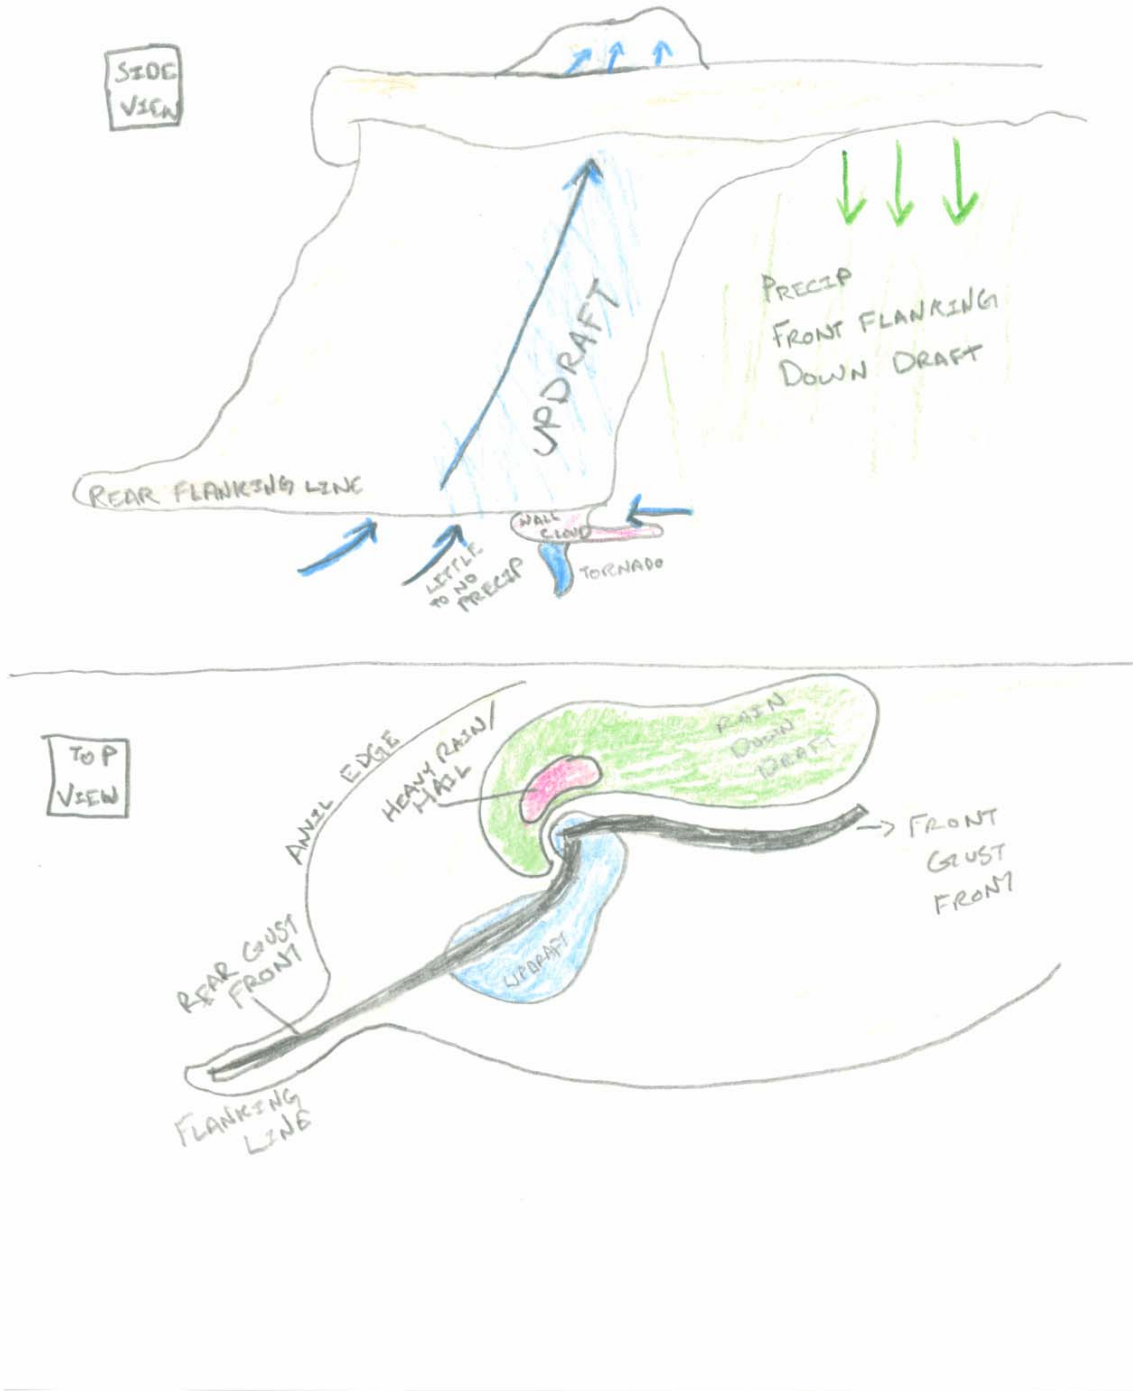 SIDE
VIEW
UPDRAFT
PRECIP
FRONT FLANKING
DOWN DRAFT
REAR FLANKING LINE
WALL
CLOUD
LITTLE
TO NO
PRECIP
TORNADO
TOP
VIEW
ANVIL EDGE
HEAVY RAIN/
HAIL
RAIN
DOWN
DRAFT
-> FRONT
GUST
FRONT
REAR GUST
FRONT
UPDRAFT
FLANKING
LINE